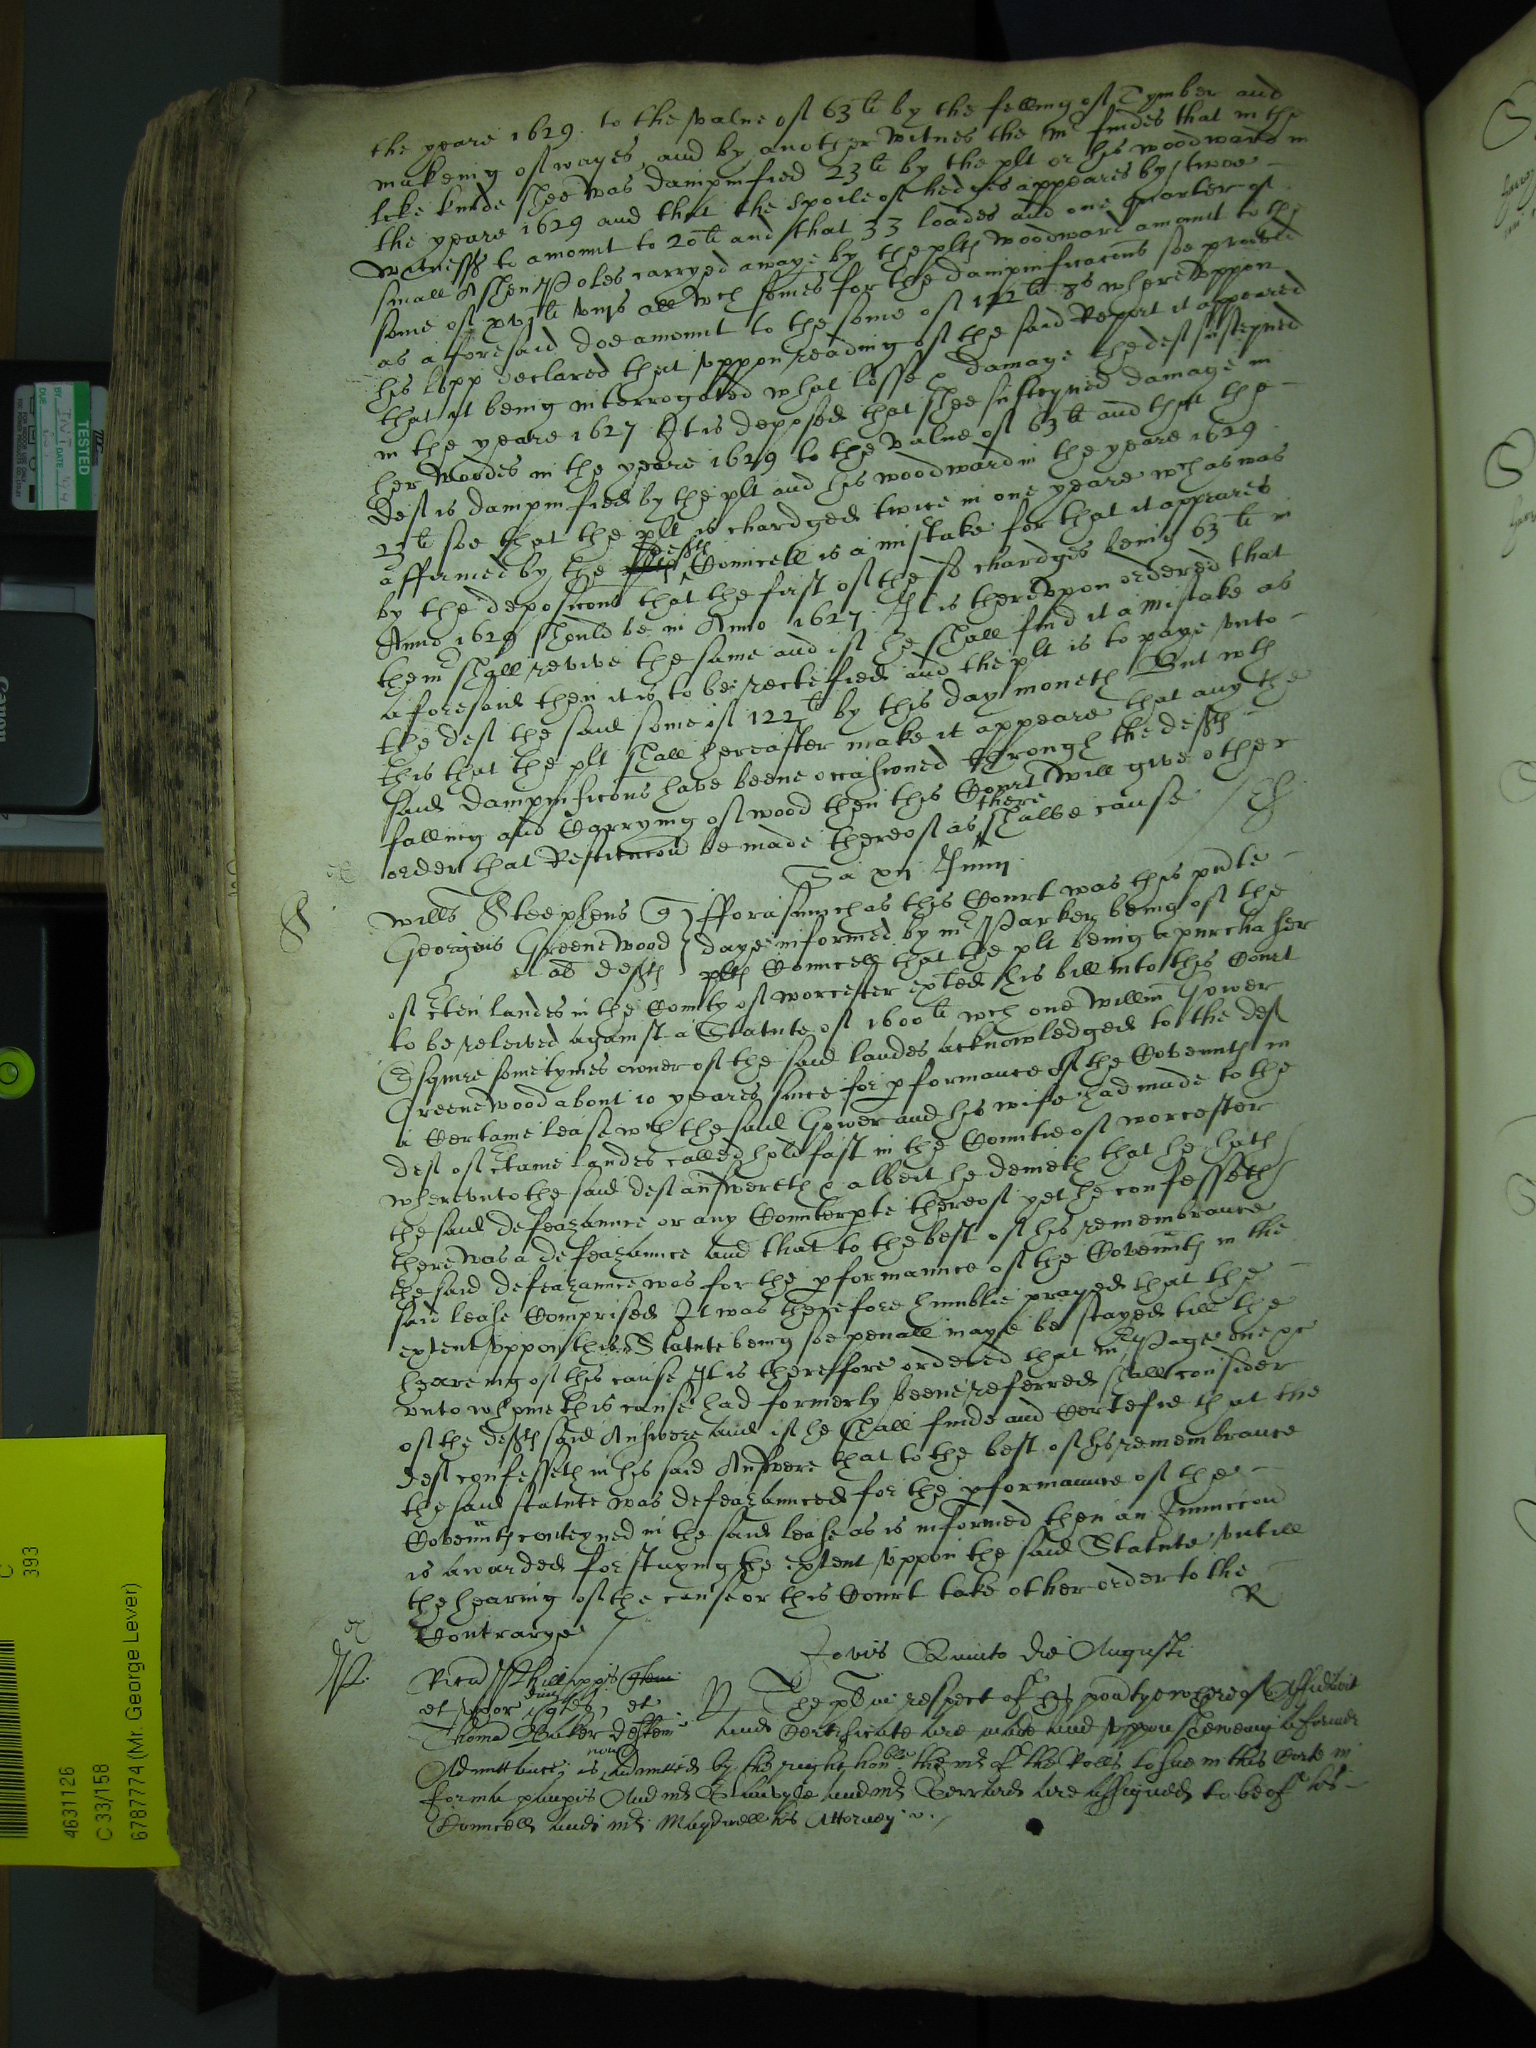 the yeare 1629 to the value of 63li by the felling of Tymber and
makeing of wayes, and by another witnes the Mr findes that in the
like kinde shee was dampnified 23li by the plt or his woodward in
the yeare 1629 and that the spoile of hedges appeares by twoe
witnesses to amount to 20li and that 33 loades and one quarter of
small Ashen Poles carryed awaye by the plts woodward amount to the
some of xvjli all wch somes for the dampnificacons soe proved
as aforesaid doe amount to the some of 122li whereuppon
his lopp declared that uppon reading of the said Report it appeared
that it being interrogated what losse & damage the deft susteyned
in the yeare 1627 It is deposed that shee susteyned damage in
her Woodes in the yeare 1629 to the value of 63li and that the
Deft is dampnified by the plt and his woodward in the yeare 1629
23li soe that the plt is chardged twice in one yeare wch as was
affirmed by the defts Councell is a mistake for that it appeares
by the deposicons that the first of these chardges being 63li in
Anno 1629 should be in Anno 1627. It is thereupon ordered that
the mr shall revive the same and if he shall find it a mistake as
aforesaid then it is to be rectefied and the plt is to paye unto
the deft the said some of 122li by this day moneth But wth
this that the plt shall hereafter make it appeare that any the
said dampnificons have beene occasioned through the defts
falling and Carrying of wood then this Court will give other
order that Restitucon be made thereof as there shalbe cause
Willus Steephens q
Georgeus Greenewood
et al deftes
fforasmuch as this Court was this pnte
daye informed by mr Parker being of the
plts Councell that the plt being a purchaser
of cten landes in the County of Worcester exted his bill into this Court
to be releived against a Statute of 1600li wch one Willm Gower
Esquire sometymes owner of the said landes acknowledged to the deft
Greenewood about 10 yeares since for pformance of the Covennts in
a Certaine lease wch the said Gower and his wife had made to the
deft of ctaine landes called holdfast in the Countie of Worcester
whereunto the said deft answereth & albeit he denieth that he hath
the said defeazannce or any Counterpte thereof yet he confesseth
there was a defeazannce and that to the best of his remembrance
the said defeazannce was for the pformannce of the Covennts in the
said lease Comprised It was therefore humblie prayed that the
extent uppon this Statute being soe penall maye be stayed till the
heareing of this cause It is thereffore ordered that mr Page one &c
unto whome this cause had formerly beene referred shall consider
of the defts said Answere and if he shall finde and Certefie that the
deft confesseth in his said Answere that to the best of his remembrance
the said statute was defeazannced for the pformannce of the
Covennts conteyned in the said lease as is informed then an Iniunccon
is awarded for staying the extent uppon the said Statute untill
the hearing of the cause or this Court take other order to the
Contrarye
R
Jovis Quinto die Augusti
Ricus Phillipps
et uxor et
Thoma Baker deften
The plt in respect of his povtye whereof Affidavit
and Certificate are made and uppon sheweing a former
Admittance, is now admitted by the right honble the mr of the Rolls to sue in this Corte in
forma paupis And mr and mr Gerrard are assigned to be of his
Councell and mr Maydwell his Attorney
TESTED
BY INT
DATE
DUE
Canon
C
393
4631126
C 33/158
6787774 (Mr. George Lever)